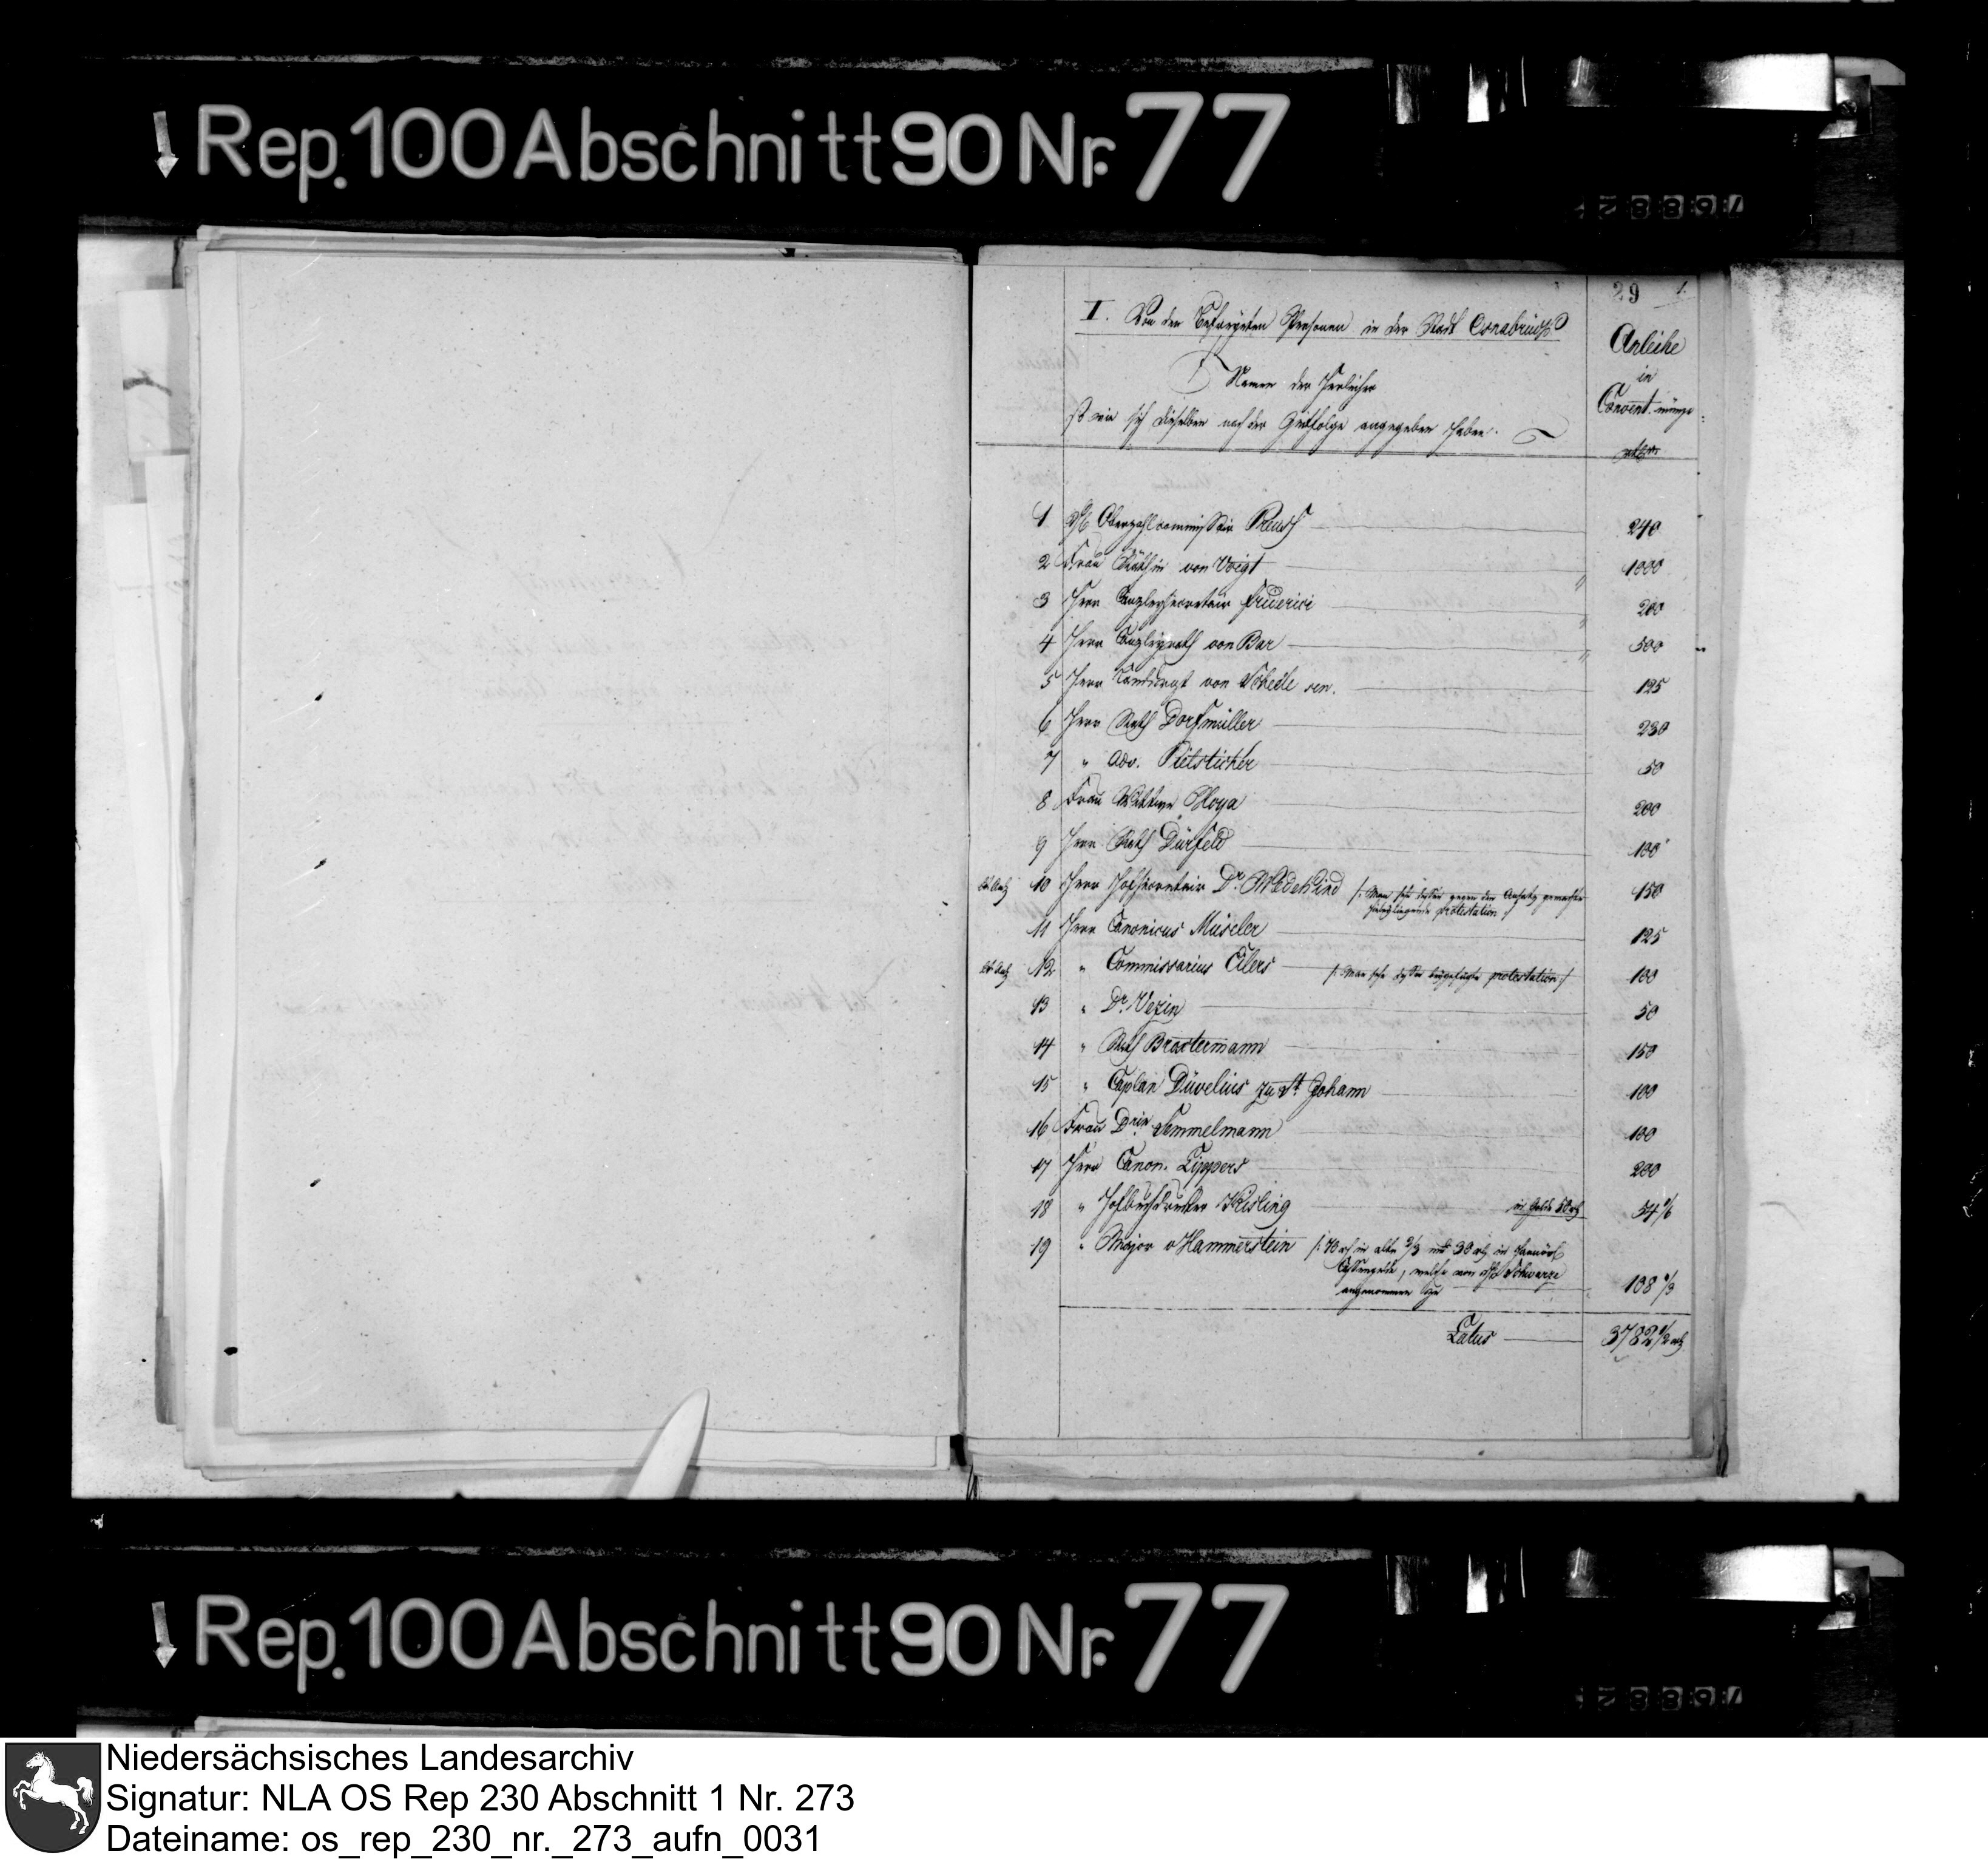 Rep. 100 Abschnitt 90 Nr. 77
29 1.
I. Von den Befreyeten Personen in der Stadt Osnabrück
Anleihe
in
Convent. münze
Namen der Herleiher
so wie sich dieselben nach der Zeitfolge angegeben haben.
rthlr.
1 Oberzahlcommissair Preuss 240
2 Frau Räthin von Voigt 1000
3 Herr Canzleysecretair Friderici 200
4 Herr Canzleyrath von Bar 500
5 Herr Landdrost von Schele sen. 125
6 Herr Rath Dorfmüller 230
7 " Adv. Pietsticker 50
8 Frau Wittwe Hoya 200
9 Herr Rath Dürfeld 100
10 Herr Hofsecretair Dr. Wedekind /: Man sehe dessen gegen den Ansatz gemachte 150
protestation :/
11 Herr Canonicus Müseler 125
12 " Commissarius Eilers /: Man sehe dessen beygefügte protestation :/ 100
13 " Dr. Vezin 50
14 " Rath Broxtermann 150
15 " Caplan Düvelius zu St. Johann 100
16 Frau Drin Temmelmann 100
17 Herr Canon. Lippers 200
18 " Hofbuchdrucker Kisling in Golde 50 rth 54 1/6
19 " Major v Hammerstein /: 70 rth in alten 2/3 und 30 rth in Hannövr.
Cassengelde, welche von Schwarze
angenommen zu 108 1/3
Latus 3782 1/2 rth
Rep. 100 Abschnitt 90 Nr. 77
Niedersächsisches Landesarchiv
Signatur: NLA OS Rep 230 Abschnitt 1 Nr. 273
Dateiname: os_rep_230_nr._273_aufn_0031